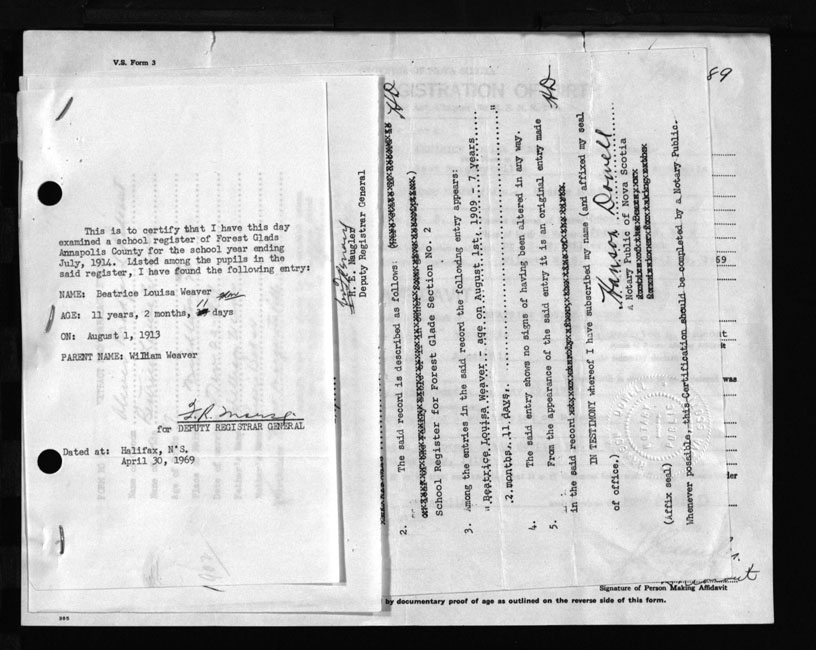 V.S. Form 3
This is to certify that I have this day
examined a school register of Forest Glads
Annapolis County for the school year ending
July, 1914. Listed among the pupils in the
said register, I have found the following entry:
NAME: Beatrice Louisa Weaver
AGE: 11 years, 2 months, 11 days
ON: August 1, 1913
PARENT NAME: William Weaver
for DEPUTY REGISTRAR GENERAL
Dated at: Halifax, N.S.
April 30, 1969
H. E. Naugler
Deputy Registrar General
2. The said record is described as follows:
School Register for Forest Glade Section No. 2
3. Among the entries in the said record the following entry appears:
"Beatrice Louisa Weaver - age on August 1st, 1909 - 7 years
2 months, 11 days.
4. The said entry shows no signs of having been altered in any way.
5. From the appearance of the said entry it is an original entry made
in the said record
IN TESTIMONY whereof I have subscribed my name (and affixed my seal
of office.)
Hanson Dowell
A Notary Public of Nova Scotia
(Affix seal)
Whenever possible, this Certification should be completed by a Notary Public.
89
59
it
was
der
Signature of Person Making Affidavit
by documentary proof of age as outlined on the reverse side of this form.